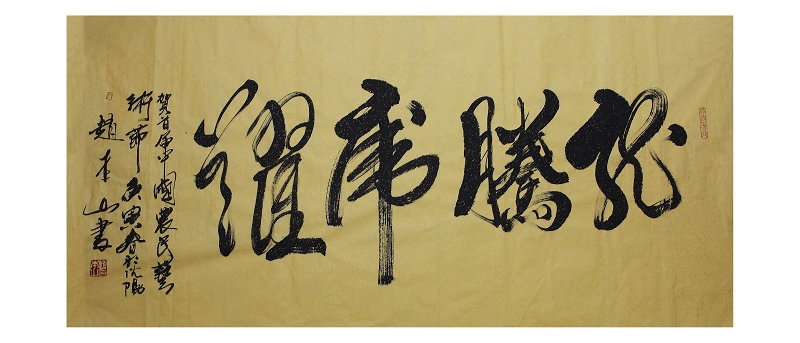 龍騰虎躍
賀首届中國農民藝
術節 庚寅春於沈陽
趙本山書